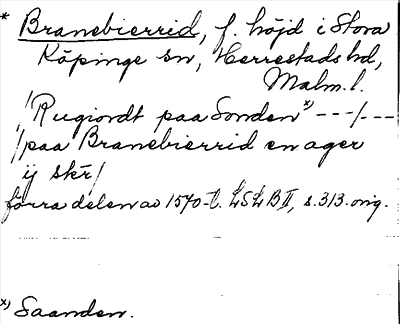 * Branebierrid, f. höjd i Stora
Köpinge sn, Herrestads hd,
Malm. l.
/Rugiordt paa Sonden x) ---/---
/paa Branebierrid en ager
ij skr/
förra delen av 1570-t. LSLB II, s. 313. orig.
x) Saanden.